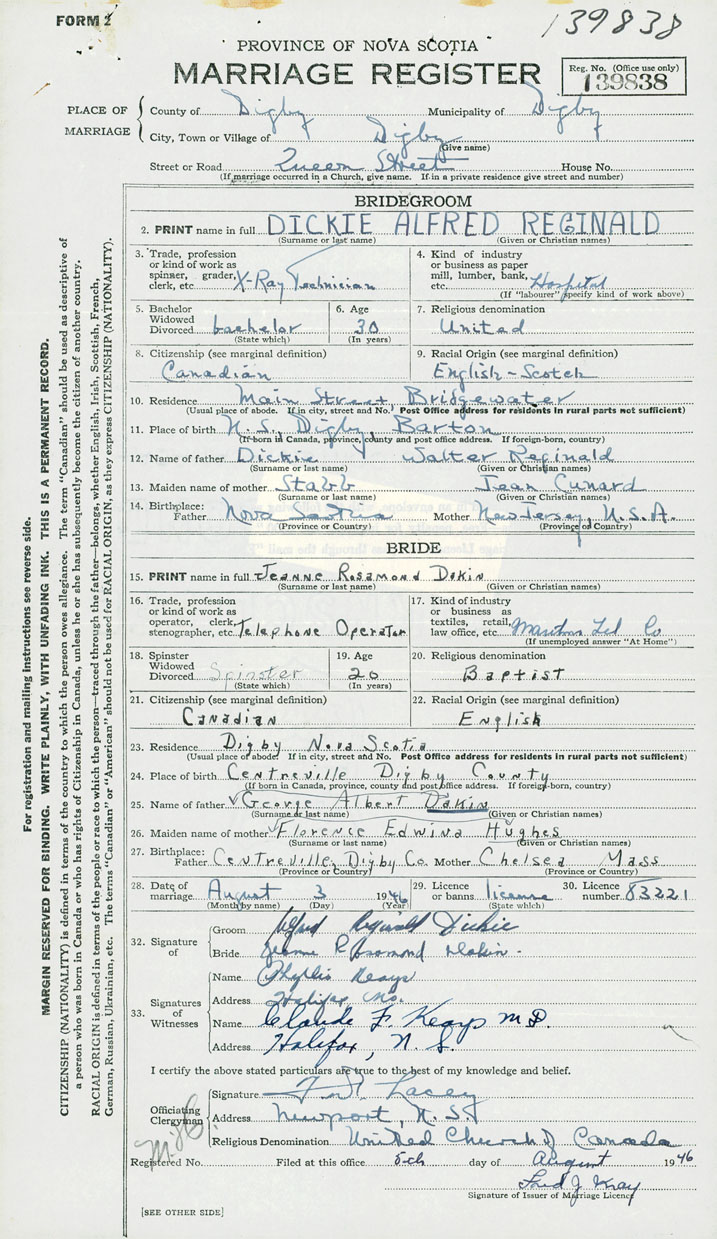 FORM 2
139838
PROVINCE OF NOVA SCOTIA
MARRIAGE REGISTER
Reg. No. (Office use only)
139838
PLACE OF MARRIAGE
County of Digby Municipality of Digby
City, Town or Village of Digby
(Give name)
Street or Road Queen Street House No.
(If marriage occurred in a Church, give name. If in a private residence give street and number)
BRIDEGROOM
2. PRINT name in full DICKIE ALFRED REGINALD
(Surname or last name) (Given or Christian names)
3. Trade, profession or kind of work as spinner, grader, clerk, etc. X-Ray Technician
4. Kind of industry or business as paper mill, lumber, bank, etc. Hospital
(If "labourer" specify kind of work above)
5. Bachelor Widowed Divorced bachelor
(State which)
6. Age 30
(In years)
7. Religious denomination
United
8. Citizenship (see marginal definition)
Canadian
9. Racial Origin (see marginal definition)
English-Scotch
10. Residence Main Street Bridgewater
(Usual place of abode. If in city, street and No. Post Office address for residents in rural parts not sufficient)
11. Place of birth N.S. Digby Barton
(If born in Canada, province, county and post office address. If foreign-born, country)
12. Name of father Dickie Walter Reginald
(Surname or last name) (Given or Christian names)
13. Maiden name of mother Stabb Jean Cunard
(Surname or last name) (Given or Christian names)
14. Birthplace: Father Nova Scotia Mother New Jersey, U.S.A.
(Province or Country) (Province or Country)
BRIDE
15. PRINT name in full Jeanne Rosamond Dakin
(Surname or last name) (Given or Christian names)
16. Trade, profession or kind of work as operator, clerk, stenographer, etc. Telephone Operator
17. Kind of industry or business as textiles, retail, law office, etc. Maritime Tel Co
(If unemployed answer "At Home")
18. Spinster Widowed Divorced Spinster
(State which)
19. Age 20
(In years)
20. Religious denomination
Baptist
21. Citizenship (see marginal definition)
Canadian
22. Racial Origin (see marginal definition)
English
23. Residence Digby Nova Scotia
(Usual place of abode. If in city, street and No. Post Office address for residents in rural parts not sufficient)
24. Place of birth Centreville Digby County
(If born in Canada, province, county and post office address. If foreign-born, country)
25. Name of father George Albert Dakin
(Surname or last name) (Given or Christian names)
26. Maiden name of mother Florence Edwina Hughes
(Surname or last name) (Given or Christian names)
27. Birthplace: Father Centreville, Digby Co. Mother Chelsea Mass
(Province or Country) (Province or Country)
28. Date of marriage August 3 1946
(Month by name) (Day) (Year)
29. Licence or banns license
(State which)
30. Licence number 83221
32. Signature of
Groom Alfred Reginald Dickie
Bride Jeanne Rosamond Dakin
33. Signatures of Witnesses
Name Phyllis Keays
Address Halifax, N.S.
Name Claude F. Keays M.D.
Address Halifax, N.S.
I certify the above stated particulars are true to the best of my knowledge and belief.
Officiating Clergyman
Signature Lacey
Address Newport, N.S.
Religious Denomination United Church of Canada
Registered No. Filed at this office 5th day of August 1946
Signature of Issuer of Marriage Licence
[SEE OTHER SIDE]
For registration and mailing instructions see reverse side.
MARGIN RESERVED FOR BINDING. WRITE PLAINLY, WITH UNFADING INK. THIS IS A PERMANENT RECORD.
CITIZENSHIP (NATIONALITY) is defined in terms of the country to which the person owes allegiance. The term "Canadian" should be used as descriptive of
a person who was born in Canada or who has rights of Citizenship in Canada, unless he or she has subsequently become the citizen of another country.
RACIAL ORIGIN is defined in terms of the people or race to which the person—traced through the father—belongs, whether English, Irish, Scottish, French,
German, Russian, Ukrainian, etc. The terms "Canadian" or "American" should not be used for RACIAL ORIGIN, as they express CITIZENSHIP (NATIONALITY).